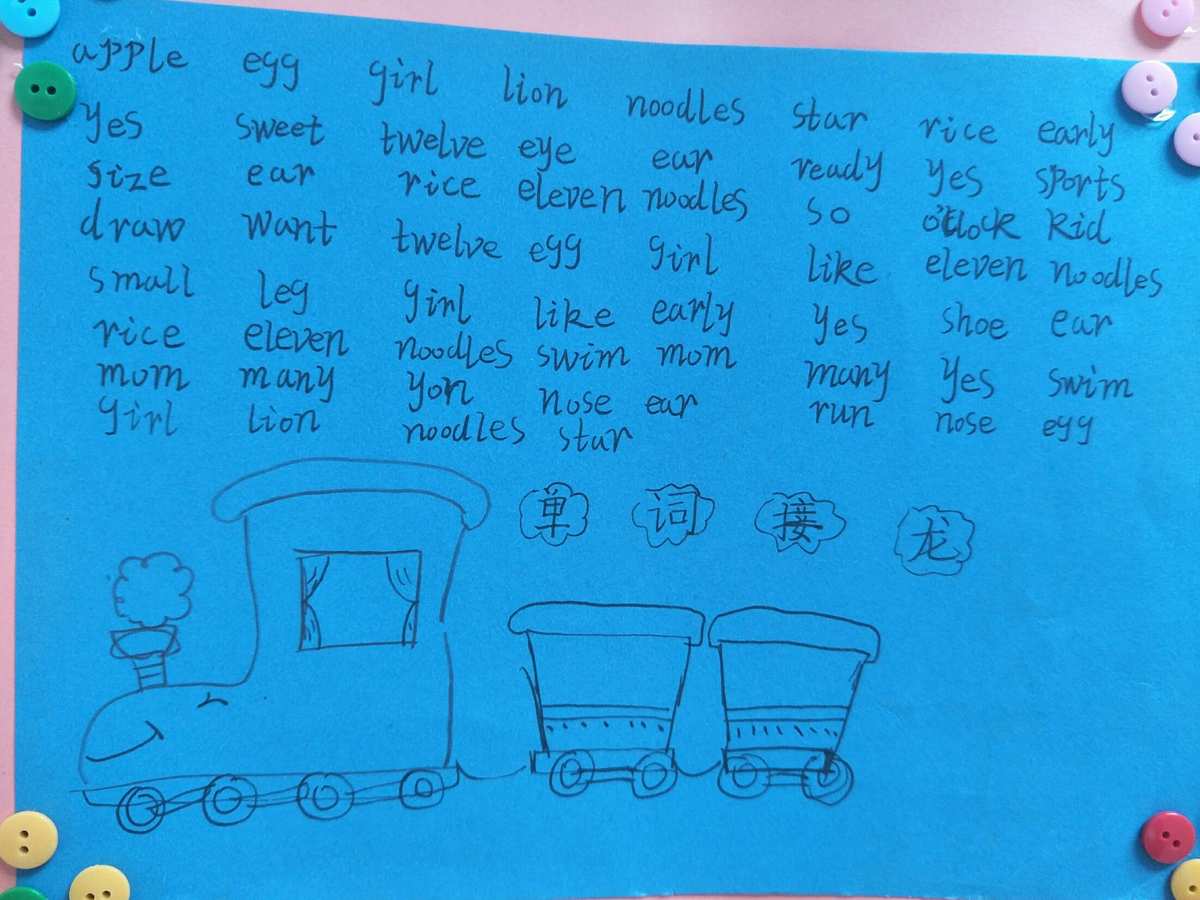 apple egg girl lion noodles star rice early
yes sweet twelve eye ear ready yes sports
size ear rice eleven noodles so o'clock kid
draw want twelve egg girl like eleven noodles
small leg girl like early yes shoe ear
rice eleven noodles swim mom many yes swim
mom many yon nose ear run nose egg
girl lion noodles star
单词接龙